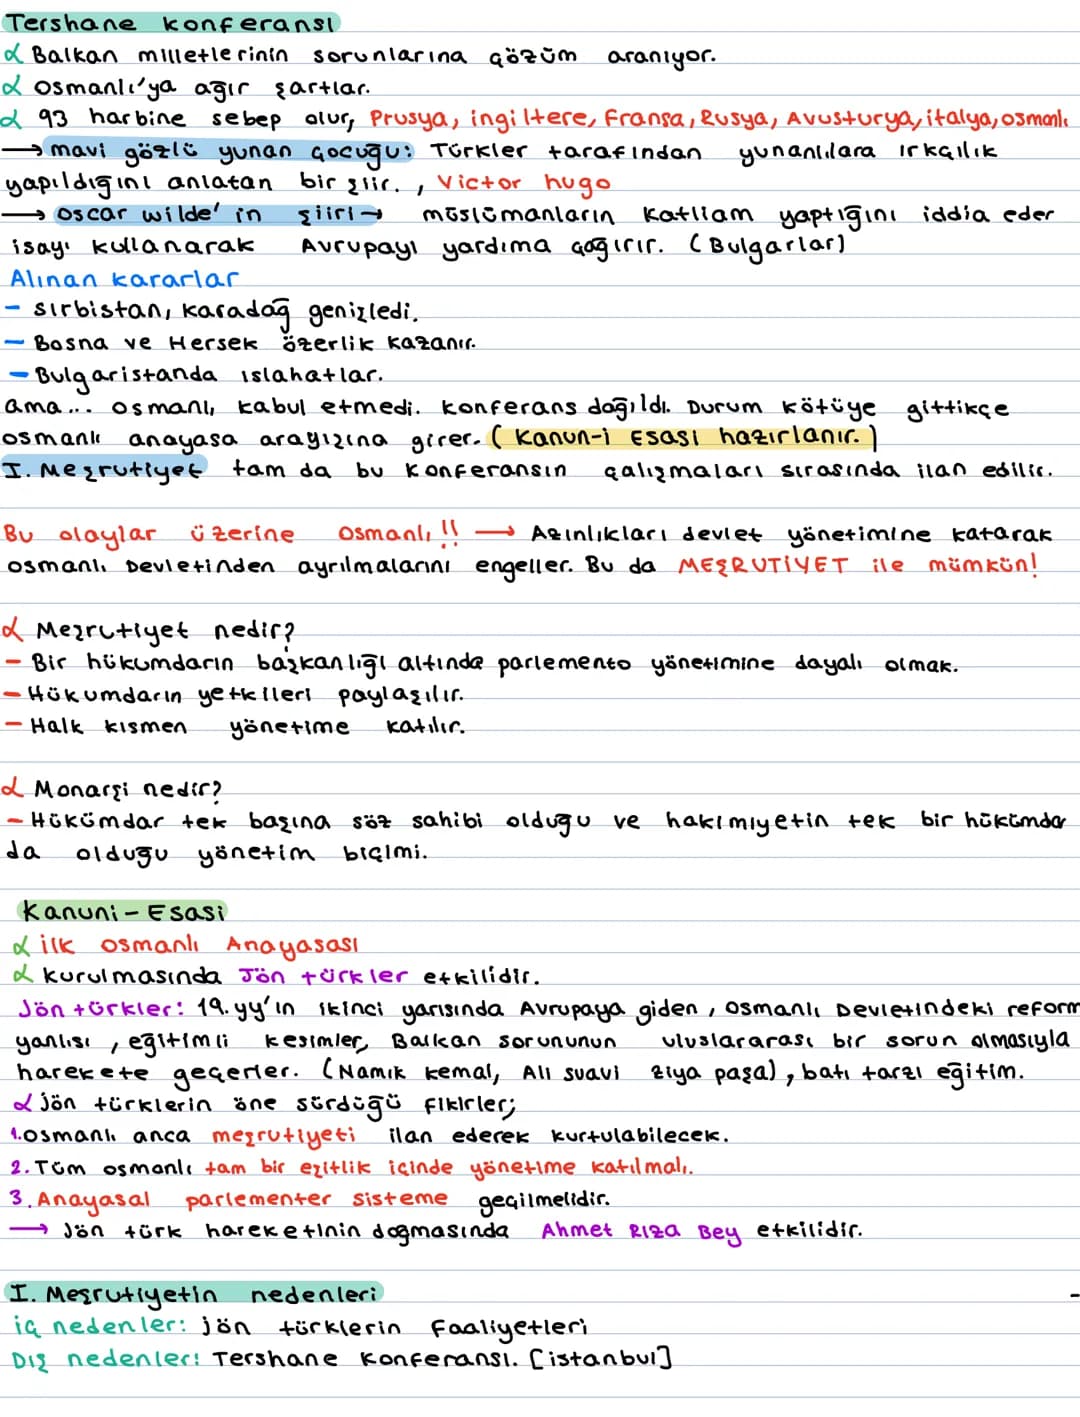 Tershane konferansı
α Balkan milletlerinin sorunlarına çözüm aranıyor.
α Osmanlı'ya ağır şartlar.
α 93 harbine sebep olur, Prusya, ingiltere, Fransa, Rusya, Avusturya, italya, osmanlı
→ mavi gözlü yunan çocuğu: Türkler tarafından yunanlılara ırkçılık
yapıldığını anlatan bir şiir. , Victor hugo
→ oscar wilde' in şiiri → müslümanların katliam yaptığını iddia eder
isayı kullanarak Avrupayı yardıma çağırır. (Bulgarlar)
Alınan kararlar
- sırbistan, karadağ genişledi.
- Bosna ve Hersek özerlik kazanır.
- Bulgaristanda ıslahatlar.
ama... osmanlı, kabul etmedi. konferans dağıldı. Durum kötüye gittikçe
osmanlı anayasa arayışına girer. ( kanun-i Esasi hazırlanır. )
I. Meşrutiyet tam da bu konferansın çalışmaları sırasında ilan edilir.
Bu olaylar üzerine Osmanlı !! → Azınlıkları devlet yönetimine katarak
osmanlı Devletinden ayrılmalarını engeller. Bu da MEŞRUTİYET ile mümkün!
α Meşrutiyet nedir?
- Bir hükumdarın başkanlığı altında parlemento yönetimine dayalı olmak.
- Hükumdarın yetkileri paylaşılır.
- Halk kısmen yönetime katılır.
α Monarşi nedir?
- Hükümdar tek başına söz sahibi olduğu ve hakimiyetin tek bir hükümdar
da olduğu yönetim biçimi.
Kanuni - Esasi
α ilk osmanlı Anayasası
α kurulmasında Jön türkler etkilidir.
Jön türkler: 19. yy'ın ikinci yarısında Avrupaya giden, osmanlı Devletindeki reform
yanlısı, eğitimli kesimler, Balkan sorununun uluslararası bir sorun olmasıyla
harekete geçerler. (Namık kemal, Ali suavi ziya paşa), batı tarzı eğitim.
α jön türklerin öne sürdüğü fikirler;
1. osmanlı anca meşrutiyeti ilan ederek kurtulabilecek.
2. Tüm osmanlı tam bir eşitlik içinde yönetime katılmalı.
3. Anayasal parlementer sisteme geçilmelidir.
→ Jön türk hareketinin doğmasında Ahmet Rıza Bey etkilidir.
I. Meşrutiyetin nedenleri
iç nedenler: jön türklerin faaliyetleri
Dış nedenler: Tershane konferansı. [istanbul]